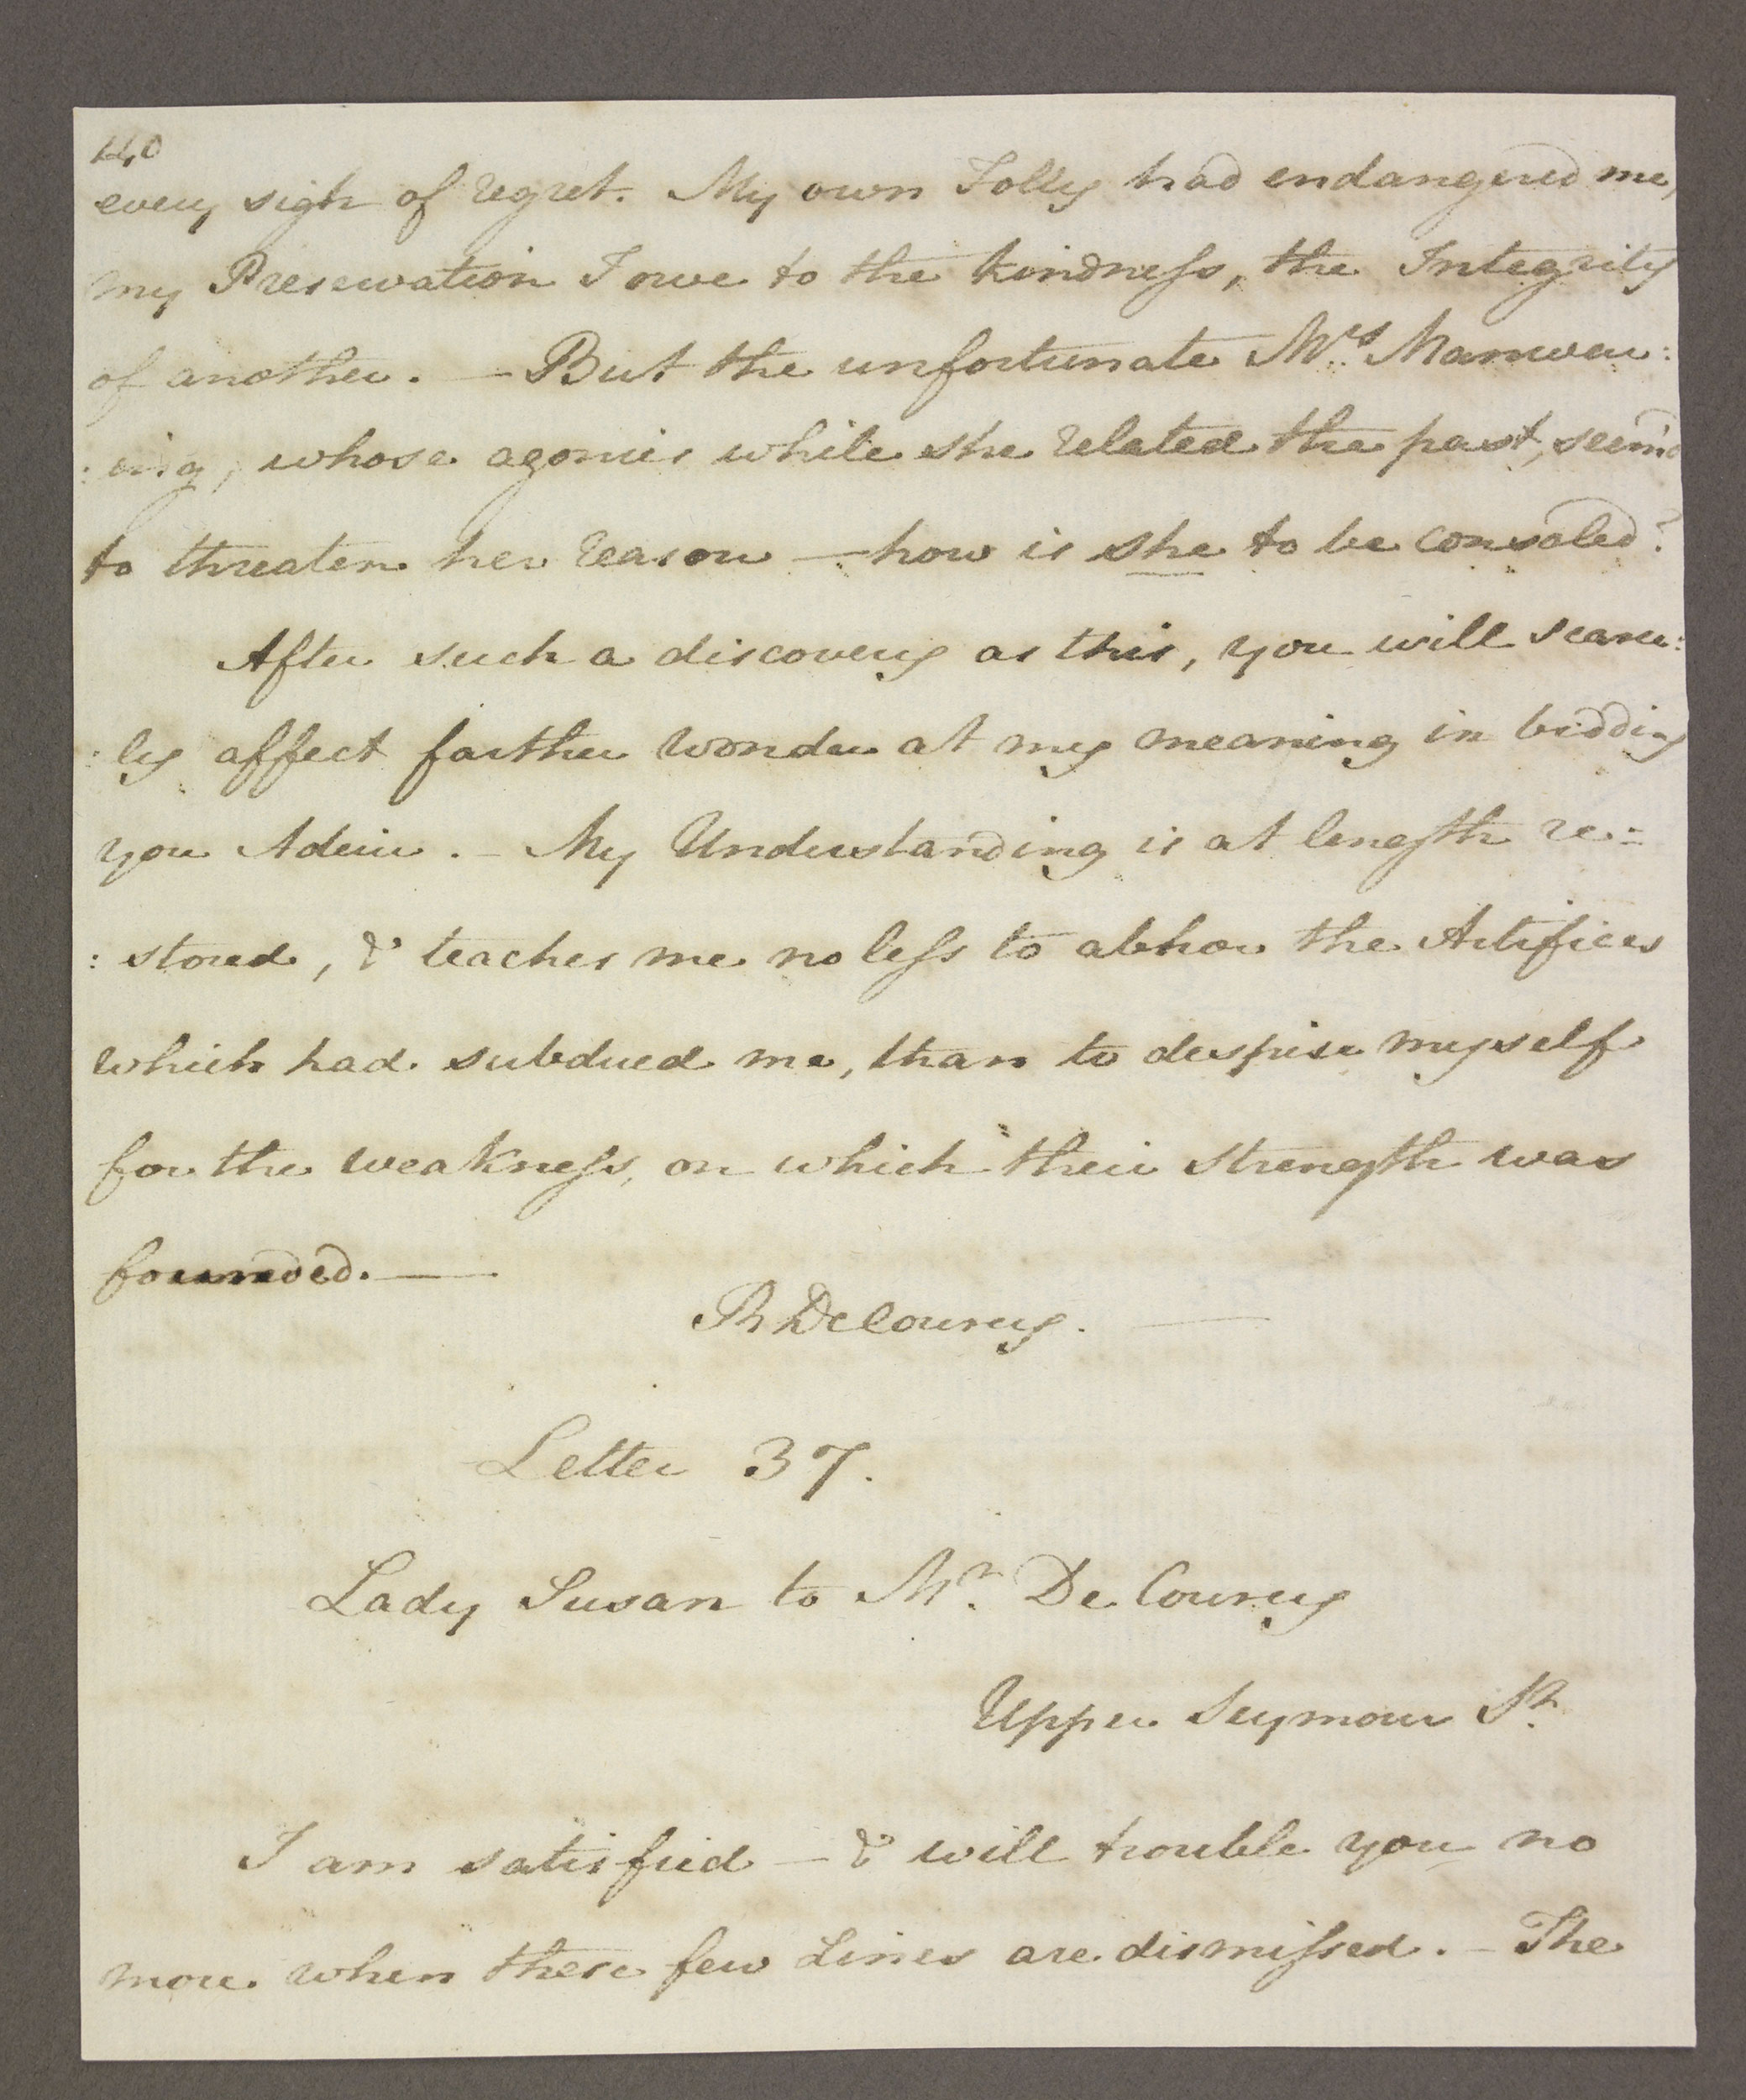 140
every sigh of regret. My own Folly had endangered me,
my Preservation I owe to the kindness, the Integrity
of another. — But the unfortunate Mrs. Manwer:
:ing, whose agonies while she related the past, seem'd
to threaten her reason — how is she to be consoled?
After such a discovery as this, you will scarce:
:ly affect farther wonder at my meaning in bidding
you Adeiu. — My Understanding is at length re:
:stored, & teaches me no less to abhor the Artifices
which had subdued me, than to despise myself
for the weakness, on which their strength was
founded. —
R De Courcy. —
Letter 37.
Lady Susan to Mr. De Courcy
Upper Seymour St.
I am satisfied — & will trouble you no
more when these few Lines are dismissed. — The